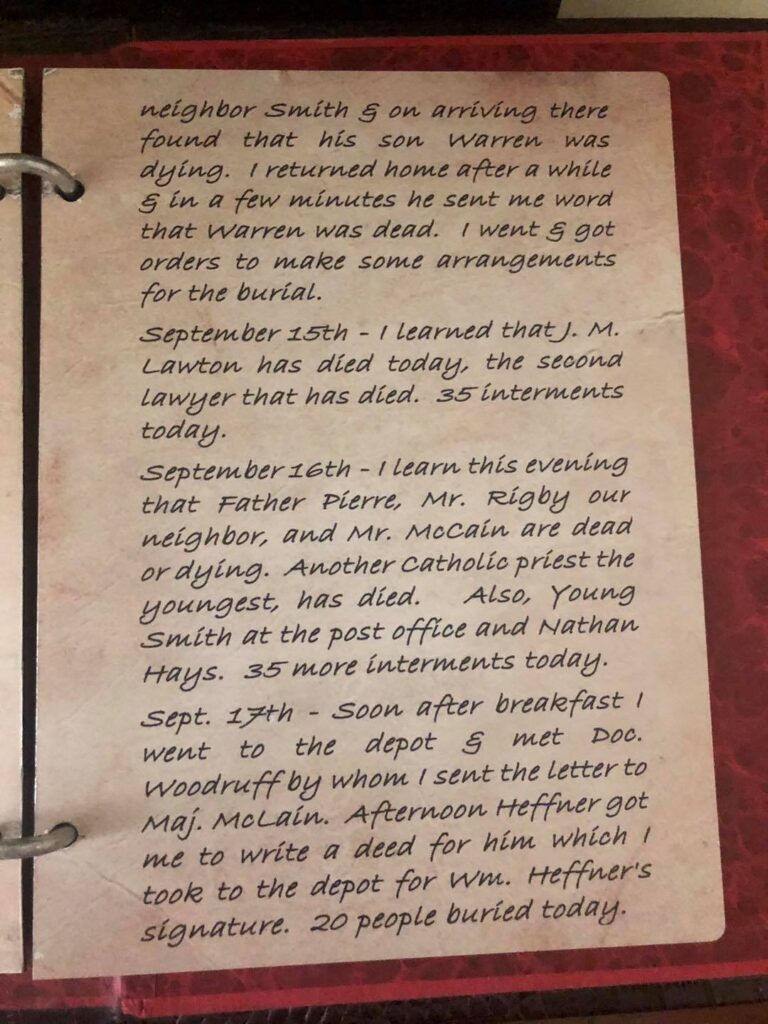 neighbor Smith & on arriving there
found that his son Warren was
dying. I returned home after a while
& in a few minutes he sent me word
that Warren was dead. I went & got
orders to make some arrangements
for the burial.
September 15th - I learned that J. M.
Lawton has died today, the second
lawyer that has died. 35 interments
today.
September 16th - I learn this evening
that Father Pierre, Mr. Rigby our
neighbor, and Mr. McCain are dead
or dying. Another Catholic priest the
youngest, has died. Also, Young
Smith at the post office and Nathan
Hays. 35 more interments today.
Sept. 17th - Soon after breakfast I
went to the depot & met Doc.
Woodruff by whom I sent the letter to
Maj. McLain. Afternoon Heffner got
me to write a deed for him which I
took to the depot for Wm. Heffner's
signature. 20 people buried today.